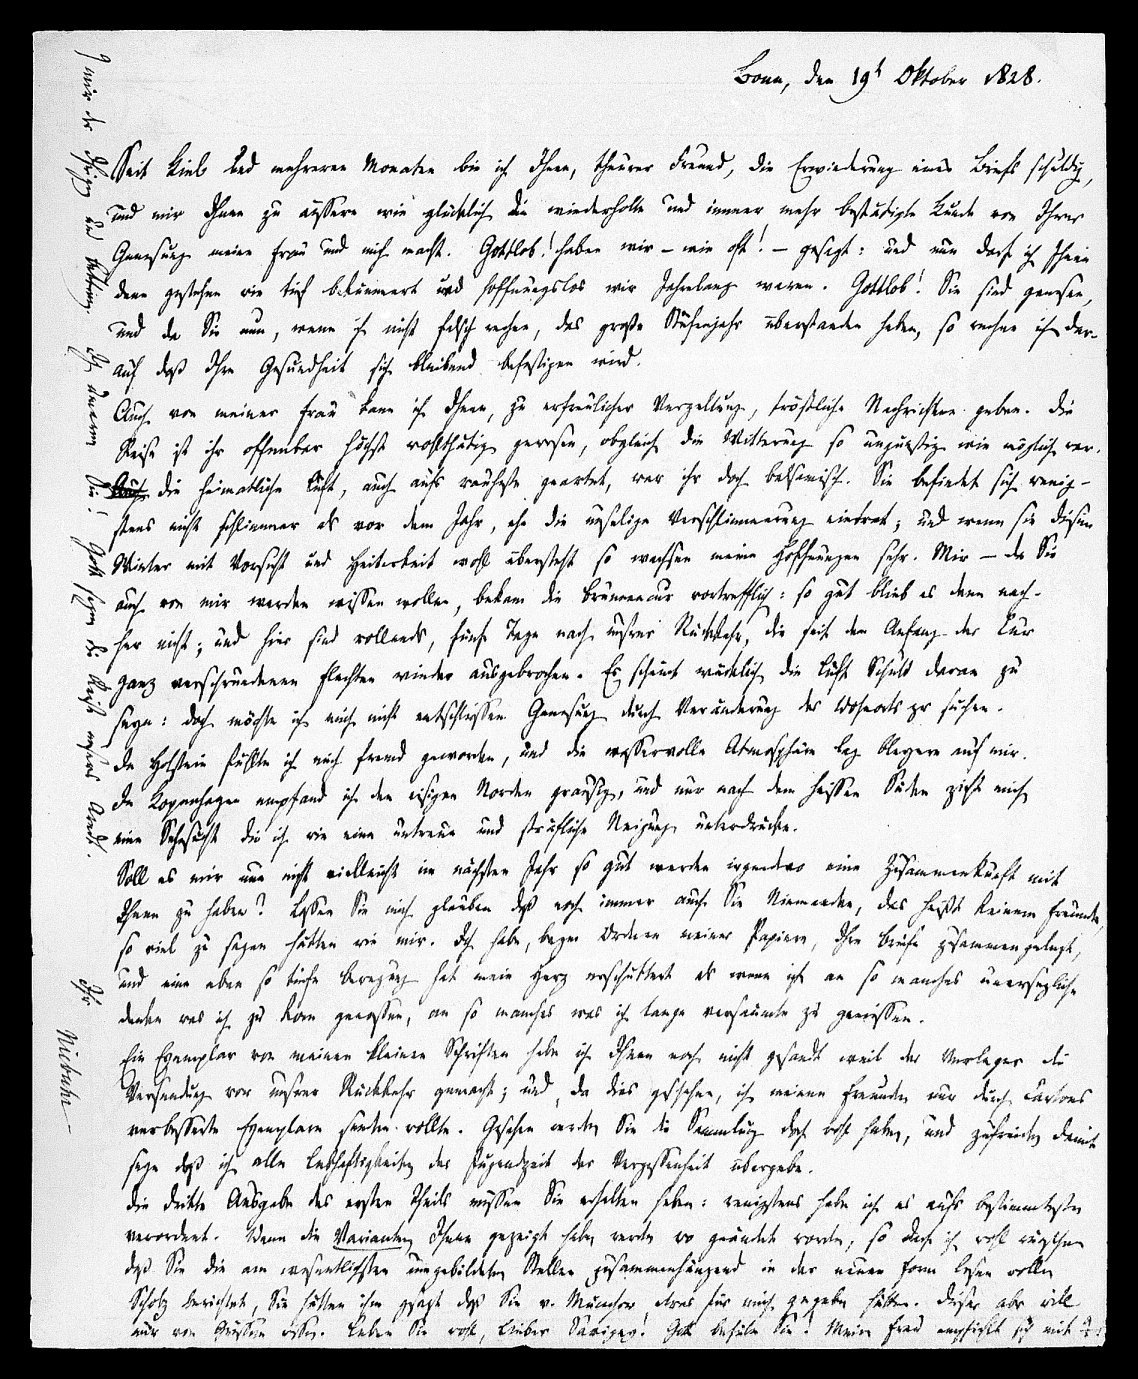 Bonn, den 19t Oktober 1828.
Seit Kiel und mehreren Monaten bin ich Ihnen, theurer Freund, die Erwiederung eines Briefs schuldig,
und mir Ihnen zu äussern wie glücklich die wiederholte und immer mehr bestätigte Kunde von Ihrer
Genesung meine Frau und mich macht. Gottlob! haben wir – wie oft! – gesagt: und nun darf ich Ihnen
denn gestehen wie tief bekümmert und hoffnungslos wir Jahrelang waren. Gottlob! Sie sind genesen,
und da Sie nun, wenn ich nicht falsch rechne, das große Stufenjahr überstanden haben, so rechne ich dar-
auf daß Ihre Gesundheit sich bleibend befestigen wird.
Auch von meiner Frau kann ich Ihnen, zu erfreulicher Vergeltung, tröstliche Nachrichten geben. Die
Reise ist ihr offenbar höchst wohlthätig gewesen, obgleich die Witterung so ungünstig wie möglich war.
Auch die heimatliche Luft, auch aufs rauheste geartet, war ihr doch balsamisch. Sie befindet sich wenig-
stens nicht schlimmer als vor dem Jahr, ehe die unselige Verschlimmerung eintrat; und wenn sie diesen
Winter mit Vorsicht und Heiterkeit wohl übersteht so wachsen meine Hoffnungen sehr. Mir – da Sie
auch von mir werden wissen wollen, bekam die Brunnencur vortrefflich: so gut blieb es denn nach-
her nicht; und hier sind vollends, fünf Tage nach unsrer Rückkehr, die seit dem Anfang der Cur
ganz verschwundenen Flechten wieder ausgebrochen. Es scheint wirklich die Luft Schuld daran zu
seyn: doch möchte ich mich nicht entschliessen Genesung durch Veränderung des Wohnorts zu suchen.
In Holstein fühlte ich mich fremd geworden, und die wasservolle Atmosphäre lag bleyern auf mir.
In Kopenhagen empfand ich den eisigen Norden grausig, und nur nach dem heissen Süden zieht mich
eine Sehnsucht die ich wie eine untreue und sträfliche Neigung unterdrücke.
Soll es mir nun nicht vielleicht im nächsten Jahr so gut werden irgendwo eine Zusammenkunft mit
Ihnen zu haben? Lassen Sie mich glauben daß noch immer auch Sie Niemanden, das heißt keinem Freunde,
so viel zu sagen hätten wie mir. Ich habe, beym Ordnen meiner Papiere, Ihre Briefe zusammengelegt,
und eine eben so tiefe Bewegung hat mein Herz erschüttert als wenn ich an so manches unersezliche
denke was ich zu Rom genossen, an so manches was ich lange versäumte zu geniessen.
Ein Exemplar von meinen kleinen Schriften habe ich Ihnen noch nicht gesandt weil der Verleger die
Versendung vor unsrer Rückkehr gemacht; und, da dies geschehen, ich meinen Freunden nur durch Cartons
verbesserte Exemplare senden wollte. Gesehen werden Sie die Sammlung doch wohl haben, und zufrieden damit
seyn daß ich alle Lebhaftigkeiten der Jugendzeit der Vergessenheit übergebe.
Die dritte Ausgabe des ersten Theils müssen Sie erhalten haben: wenigstens habe ich es aufs bestimmteste
verordnet. Wenn die Varianten Ihnen gezeigt haben werden wo geändert worden, so darf ich wohl wünschen
daß Sie die am wesentlichsten umgebildeten Stellen zusammenhängend in der neuen Form lesen wollen
Scholz berichtet, Sie hätten ihm gesagt daß Sie v. Münchow etwas für mich gegeben hätten. Dieser aber will
nur von Grüssen wissen. Leben Sie wohl, lieber Savigny! Gott behüte Sie! Meine Frau empfiehlt sich mit
mir der Ihrigen und Bettina. Ich umarme Sie! Gott segne die Reise unsers Arndt.
Ihr
Niebuhr